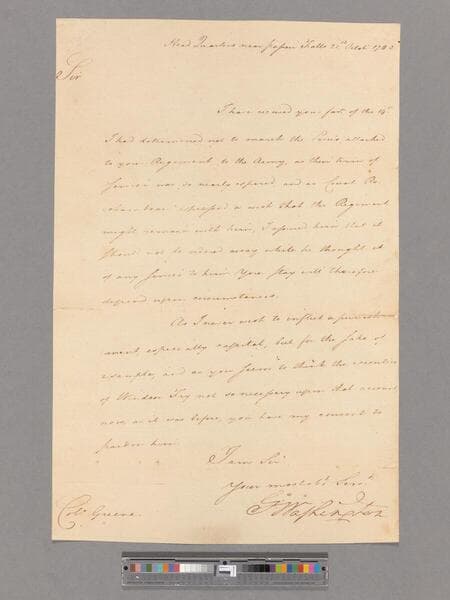 Head Quarters near passaic Falls 21st Octob. 1780
Sir
I have received your favr. of the 14th.
I had determined not to march the Levies attached
to your Regiment, to the Army, as their term of
Service was so nearly expired and as Count Ro
chambeau expressed a wish that the Regiment
might remain with him, I assured him that it
should not be ordered away while he thought it
of any service to him. Your stay will therefore
depend upon circumstances.
As I never wish to inflict a punish
ment, especially capital, but for the sake of
example, and as you seem to think the execution
of Windsor Fry not so necessary upon that account
now as it was before, you have my consent to
pardon him.
I am Sir
Your most obt. Servt.
Go: Washington
Colo. Greene.